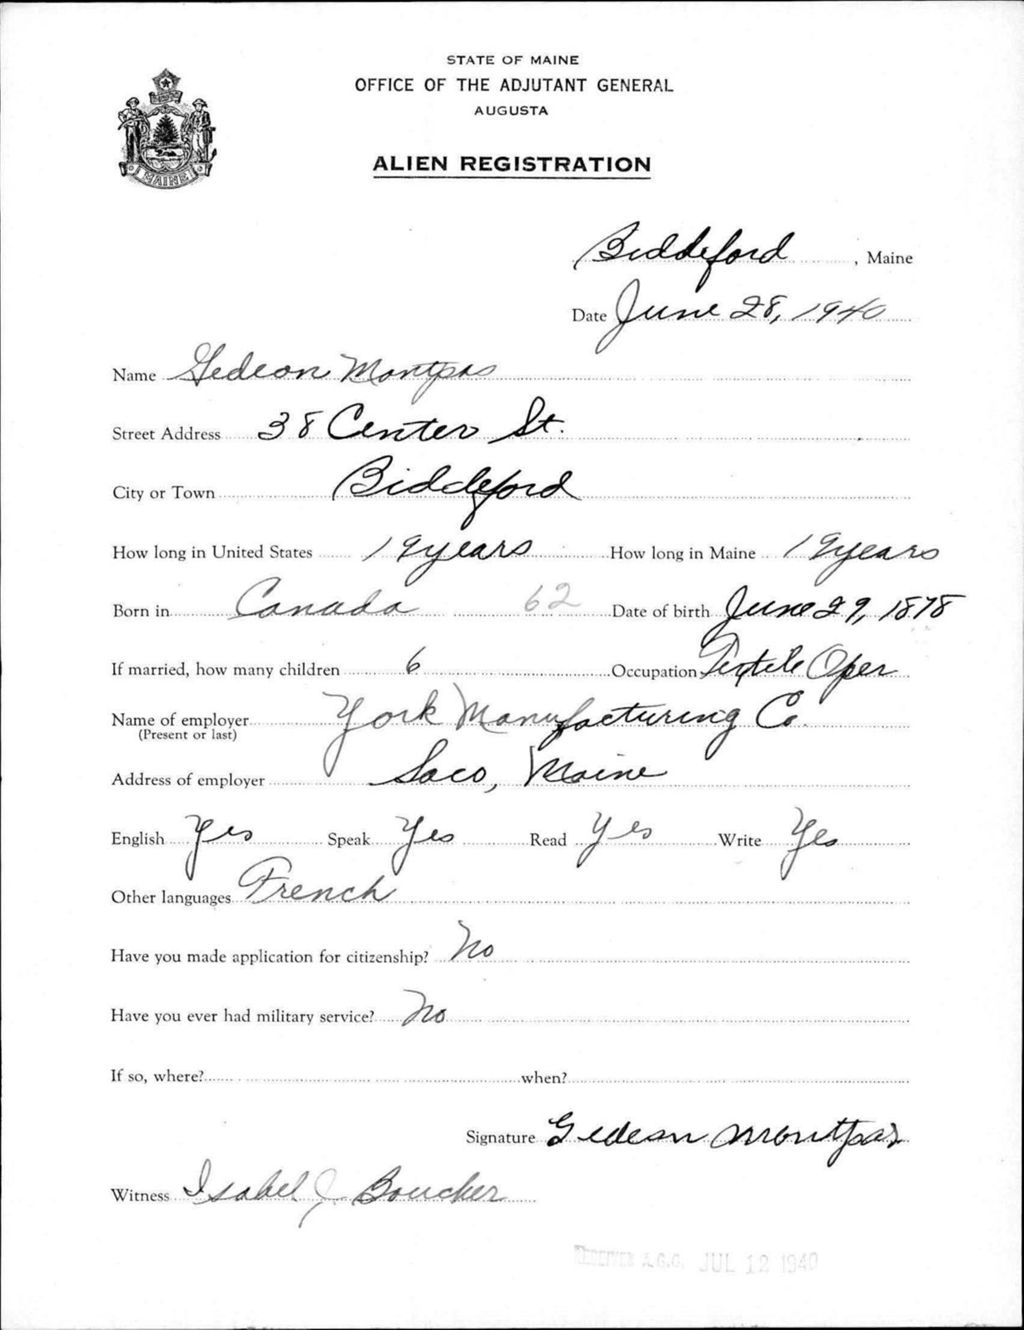 STATE OF MAINE
OFFICE OF THE ADJUTANT GENERAL
AUGUSTA
ALIEN REGISTRATION
MAINE
Biddeford, Maine
Date June 28, 1940
Name Gedeon Montpas
Street Address 38 Center St.
City or Town Biddeford
How long in United States 19 years How long in Maine 19 years
Born in Canada 62 Date of birth June 29, 1878
If married, how many children 6 Occupation Textile Oper
Name of employer York Manufacturing Co.
(Present or last)
Address of employer Saco, Maine
English Yes Speak Yes Read Yes Write Yes
Other languages French
Have you made application for citizenship? No
Have you ever had military service? No
If so, where? when?
Signature Gedeon Montpas
Witness Isabel J Boucher
RECEIVED A.G.O. JUL 12 1940